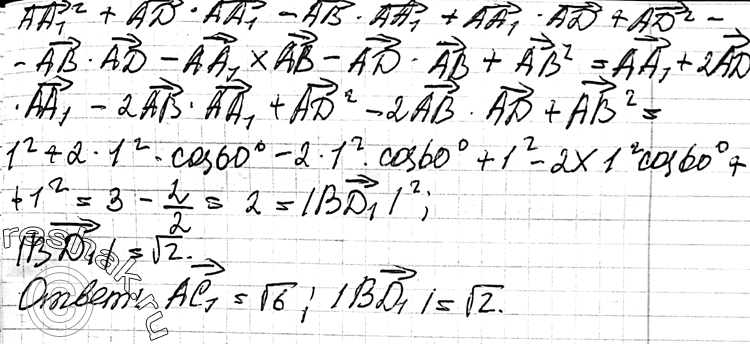 AA₁⃗² + AD⃗ · AA₁⃗ - AB⃗ · AA₁⃗ + AA₁⃗ · AD⃗ + AD⃗² -
- AB⃗ · AD⃗ - AA₁⃗ × AB⃗ - AD⃗ · AB⃗ + AB⃗² = AA₁⃗ + 2AD⃗
· AA₁⃗ - 2AB⃗ · AA₁⃗ + AD⃗² - 2AB⃗ · AD⃗ + AB⃗² =
1² + 2 · 1² · cos60° - 2 · 1² · cos60° + 1² - 2 × 1² cos60° +
+ 1² = 3 - 2/2 = 2 = |BD₁⃗|²;
|BD₁⃗| = √2.
Ответ: AC₁⃗ = √6; |BD₁⃗| = √2.
reshak.ru